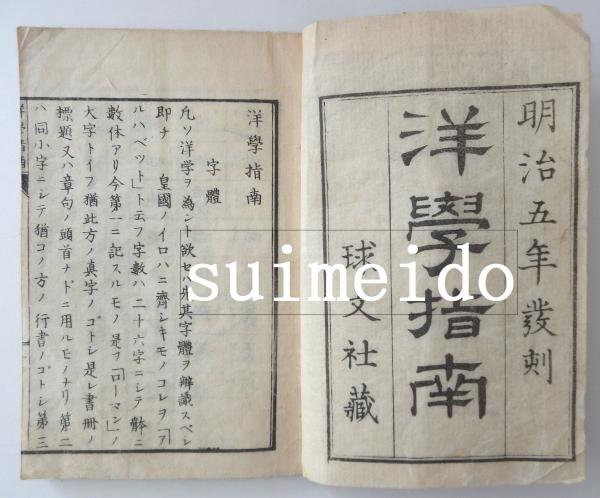 明治五年發刻
洋學指南
球文社藏
洋學指南
字體
凡ソ洋学ヲ為ント欲セハ先其字體ヲ辨識スベシ
即チ 皇國ノイロハニ齊シキモノコレヲ「ア
ルハベット」ト云フ字數ハ二十六字ニシテ體ニ
数体アリ今第一ニ記スルモノ是ヲ「ローマン」ノ
大字トイフ猶此方ノ真字ノゴトシ是レ書冊ノ
標題又ハ章句ノ頭首ナドニ用ルモノナリ第二
ハ同小字ニシテ猶コノ方ノ行書ノゴトシ第三
suimeido